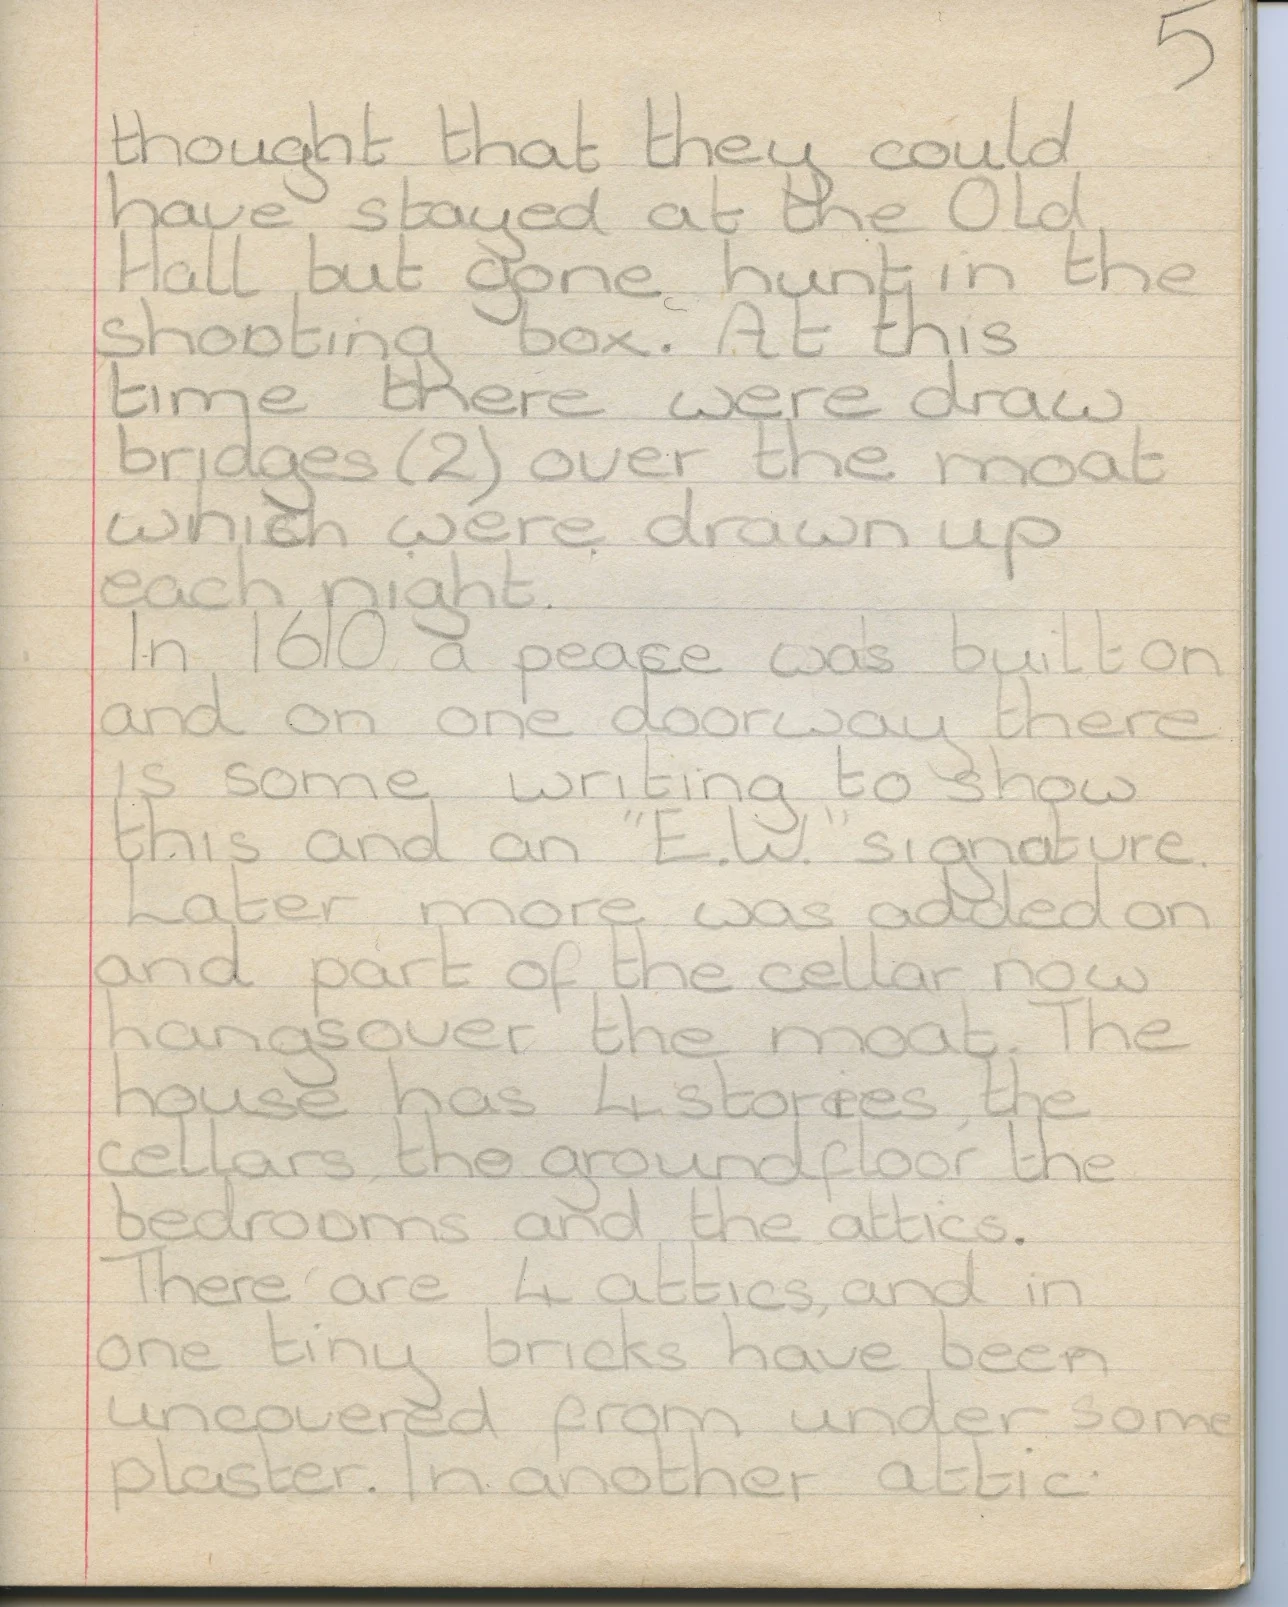 5
thought that they could
have stayed at the Old
Hall but gone hunt in the
shooting box. At this
time there were draw
bridges (2) over the moat
which were drawn up
each night.
In 1610 a peace was built on
and on one doorway there
is some writing to show
this and an "E.W." signature.
Later more was added on
and part of the cellar now
hangsover the moat. The
house has 4 stories, the
cellars, the groundfloor the
bedrooms and the attics.
There are 4 attics, and in
one tiny bricks have been
uncovered from under some
plaster. In another attic